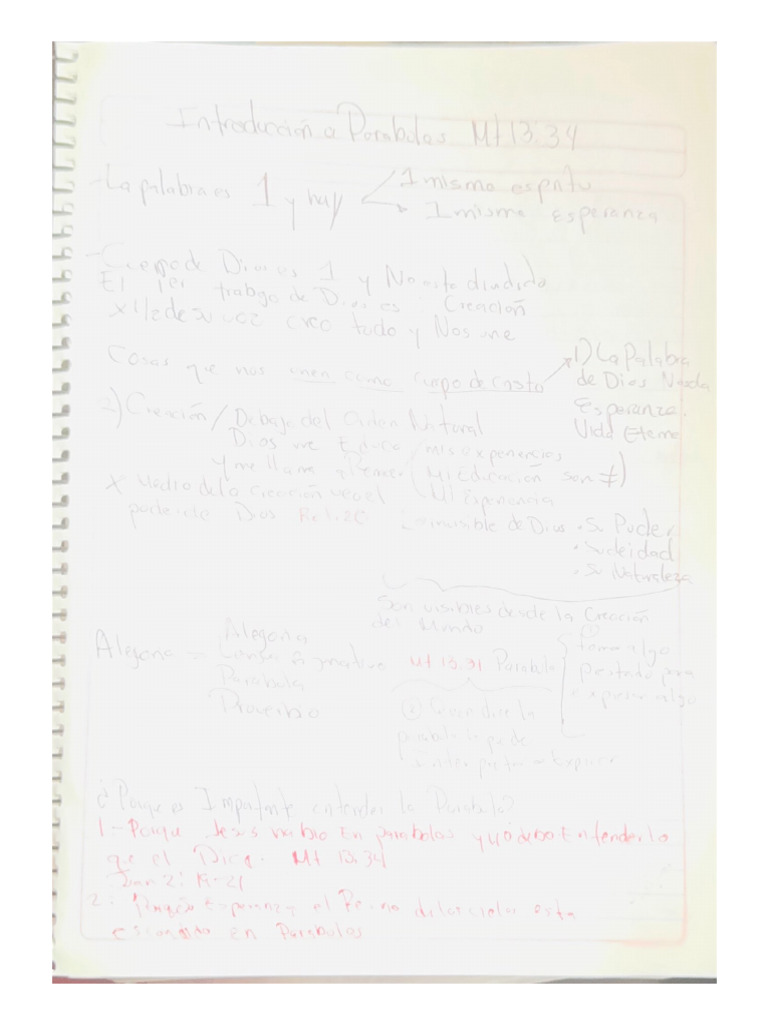 Introducción a Parabolas Mt 13:34
-La palabra es 1 y hay
1 mismo espritu
1 misma esperanza
-Cuerpo de Dios es 1 y No esta dividido
El 1er trabajo de Dios es : Creación
x 1/2 de su voz creo todo y Nos une
Cosas que nos unen como cuerpo de Cristo
1) La Palabra
de Dios Nos da
Esperanza.
Vida Eterna
2) Creación / Debajo del Orden Natural
Dios me Educo / mis experiencias
y me llama (Mi Educación son ≠)
Mi Experiencia
x Medio de la Creación veo el
poder de Dios Rel 1:20
invisible de Dios • Su Poder
• Su deidad
• Su Naturaleza
Son visibles desde la Creación
del Mundo
Alegoria =
Alegoria
Parabola
Proverbio
Mt 13:31 Parabola
(1)
toma algo
prestado para
explicar algo
(2)
parabola
interpretar Explicar
¿Porque es Importante entender la Parabola?
1-Porque Jesus hablo En parabolas y yo debo Entender lo
que el Dice. Mt 13:34
Juan 2: 19-21
2: Esperanza el Reino de los cielos esta
escondido en Parabolas